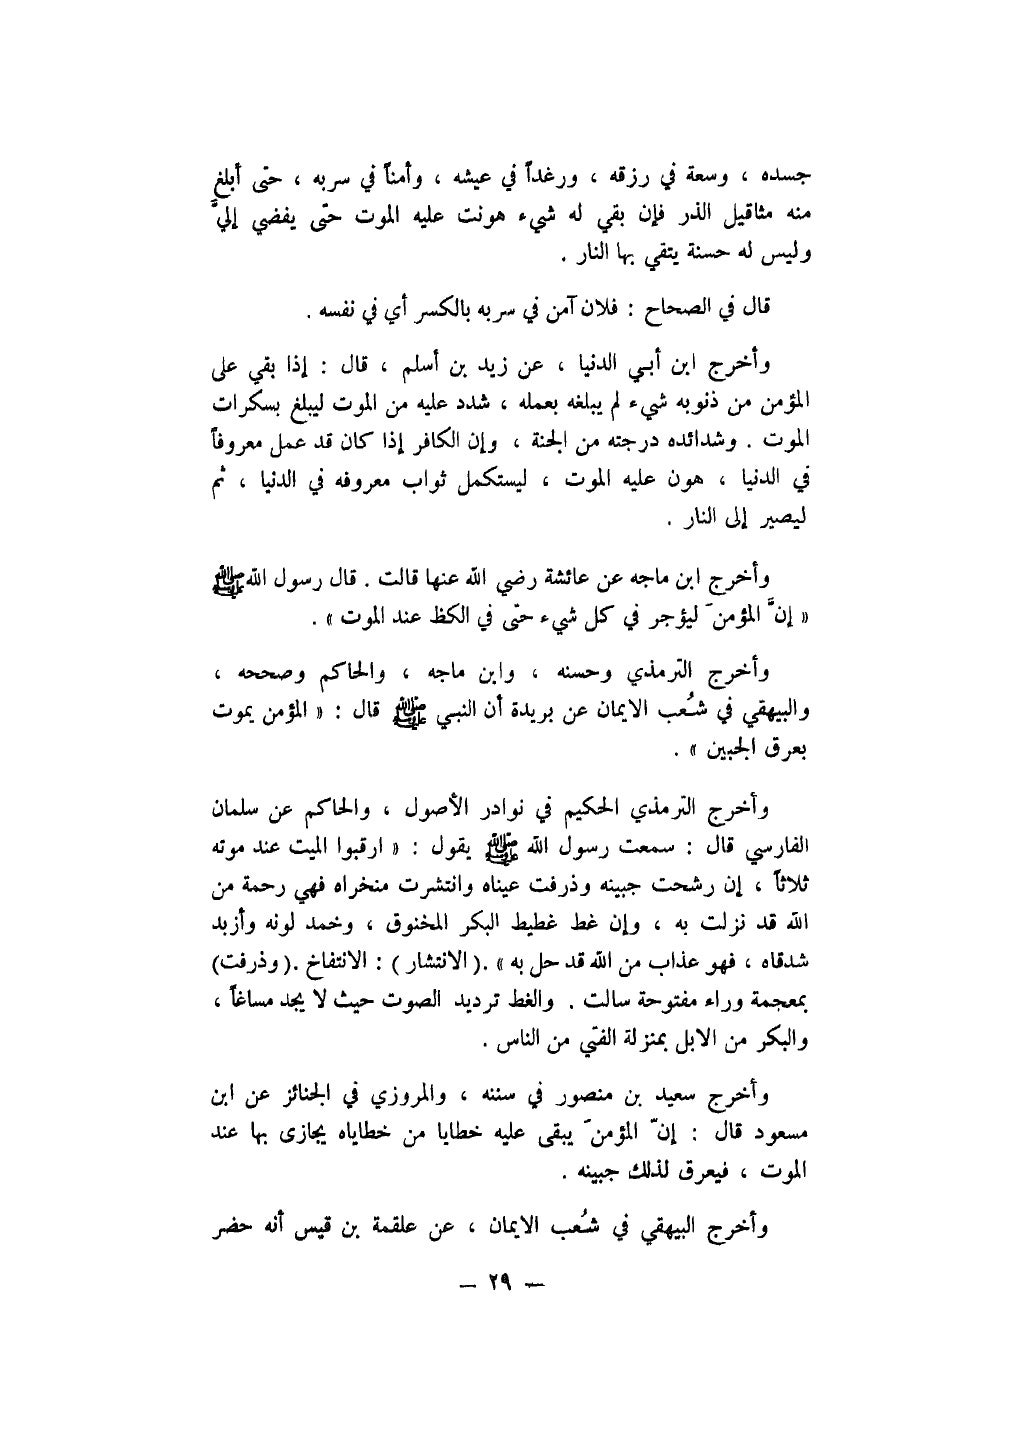 جسده ، وسعة في رزقه ، ورغداً في عيشه ، وأمناً في سربه ، حتى أبلغ
منه مثاقيل الذر فإن بقي له شيء هونت عليه الموت حتّى يفضي إليَّ
وليس له حسنة يتقي بها النار .
قال في الصحاح : فلان آمن في سربه بالكسر أي في نفسه .
وأخرج ابن أبي الدنيا ، عن زيد بن أسلم ، قال : إذا بقي على
المؤمن من ذنوبه شيء لم يبلغه بعمله ، شدد عليه من الموت ليبلغ بسكرات
الموت . وشدائده درجته من الجنة ، وإن الكافر إذا كان قد عمل معروفاً
في الدنيا ، هون عليه الموت ، ليستكمل ثواب معروفه في الدنيا ، ثم
ليصير إلى النار .
وأخرج ابن ماجه عن عائشة رضي الله عنها قالت . قال رسول الله ﷺ
« إنَّ المؤمنَ ليؤجر في كل شيء حتّى في الكظ عند الموت » .
وأخرج الترمذي وحسنه ، وابن ماجه ، والحاكم وصححه ،
والبيهقي في شُعب الايمان عن بريدة أن النبي ﷺ قال : « المؤمن يموت
بعرق الجبين » .
وأخرج الترمذي الحكيم في نوادر الأصول ، والحاكم عن سلمان
الفارسي قال : سمعت رسول الله ﷺ يقول : « ارقبوا الميت عند موته
ثلاثاً ، إن رشحت جبينه وذرفت عيناه وانتشرت منخراه فهي رحمة من
الله قد نزلت به ، وإن غط غطيط البكر المخنوق ، وخمد لونه وأزبد
شدقاه ، فهو عذاب من الله قد حل به » .( الانتشار ) : الانتفاخ .( وذرفت)
بمعجمة وراء مفتوحة سالت . والغط ترديد الصوت حيث لا يجد مساغاً ،
والبكر من الابل بمنزلة الفتي من الناس .
وأخرج سعيد بن منصور في سننه ، والمروزي في الجنائز عن ابن
مسعود قال : إنّ المؤمنَ يبقى عليه خطايا من خطاياه يجازى بها عند
الموت ، فيعرق لذلك جبينه .
وأخرج البيهقي في شُعب الايمان ، عن علقمة بن قيس أنه حضر
— ٢٩ —